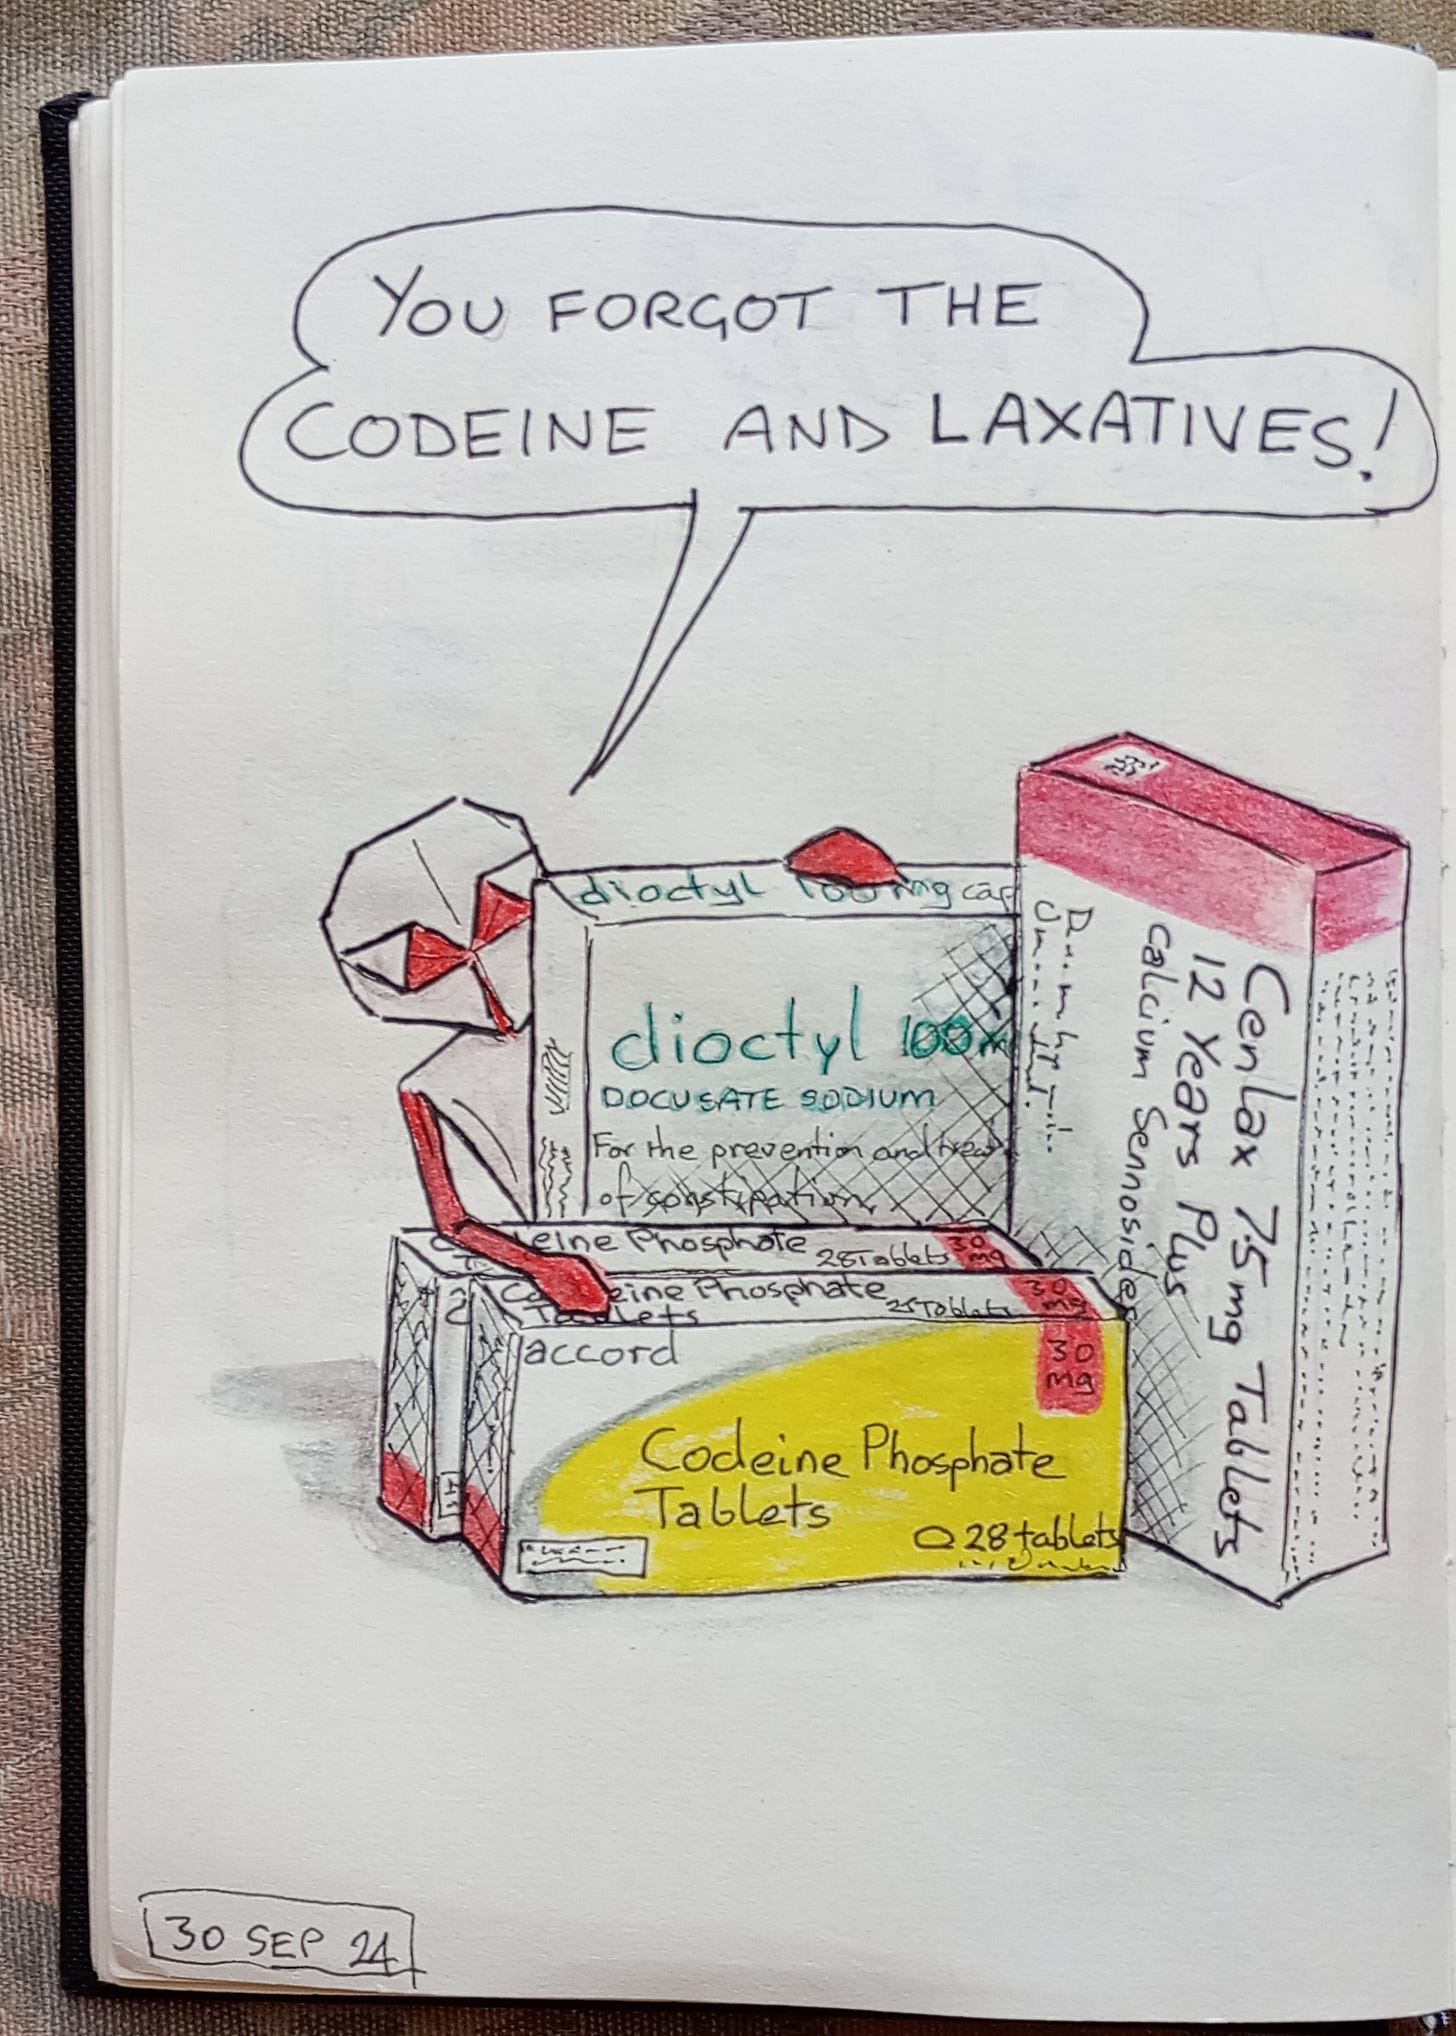 YOU FORGOT THE
CODEINE AND LAXATIVES!
dioctyl 100mg cap
dioctyl 100m
DOCUSATE SODIUM
For the prevention and treat
of constipation
Cenlax 7.5mg Tablets
12 Years Plus
Calcium Sennosides
eine Phosphate 28 Tablets 30 mg
Co eine Phosphate 28 Tablets 30 mg
Tablets
accord
30
mg
Codeine Phosphate
Tablets
28 tablets
30 SEP 24